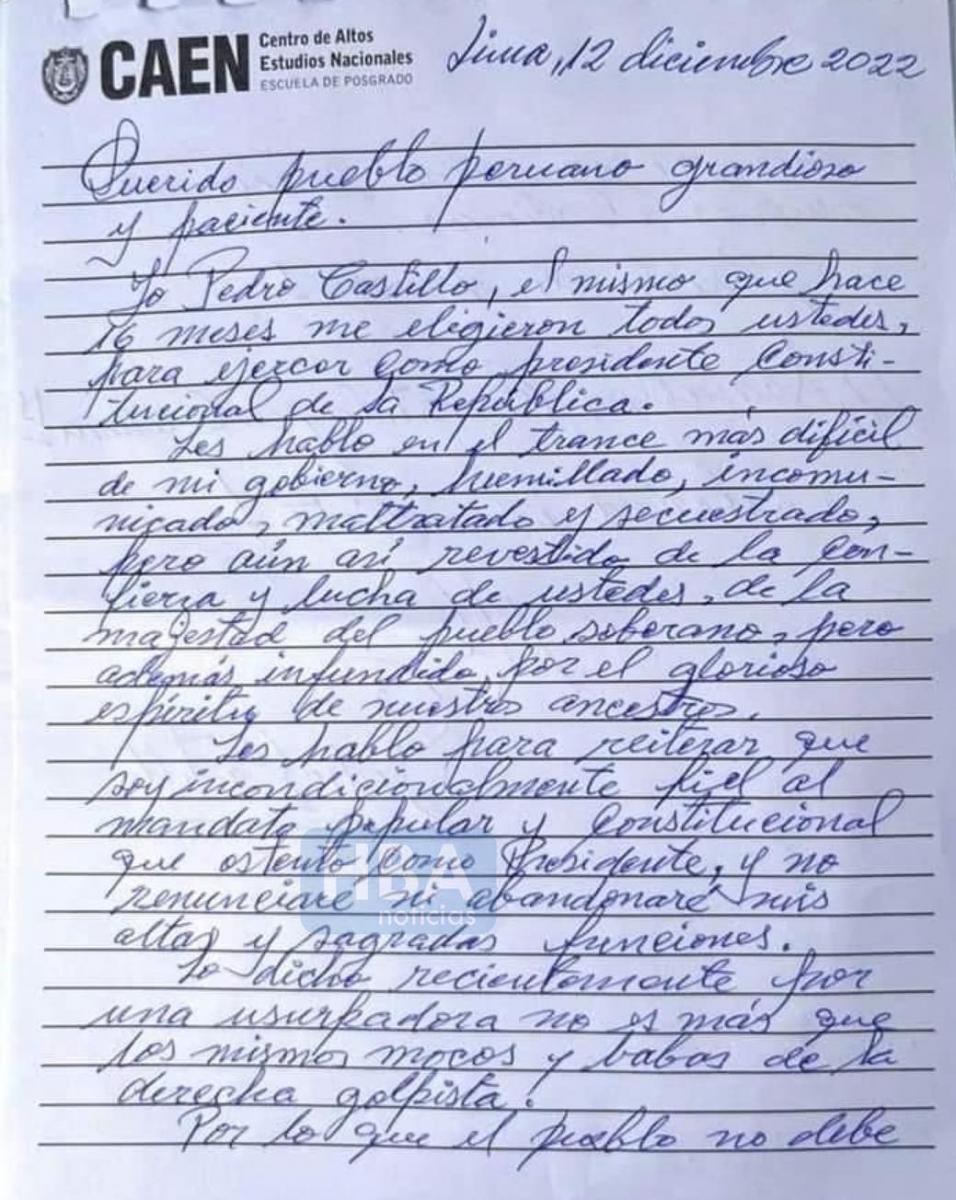 CAEN
Centro de Altos
Estudios Nacionales
ESCUELA DE POSGRADO
Lima, 12 diciembre 2022
Querido pueblo peruano grandioso
y paciente.
Yo Pedro Castillo, el mismo que hace
16 meses me eligieron todos ustedes,
para ejercer como presidente Consti-
tucional de la República.
Les hablo en el trance más difícil
de mi gobierno, humillado, incomu-
nicado, maltratado y secuestrado,
pero aún así revestido de la Con-
fienza y lucha de ustedes, de la
majestad del pueblo soberano, pero
además infundido por el glorioso
espíritu de nuestros ancestros.
Les hablo para reiterar que
soy incondicionalmente fiel al
mandato popular y Constitucional
que ostento como Presidente, y no
renunciaré ni abandonaré mis
altas y sagradas funciones.
Lo dicho recientemente por
una usurpadora no es más que
los mismos mocos y babas de la
derecha golpista.
Por lo que el pueblo no debe
HBA
noticias